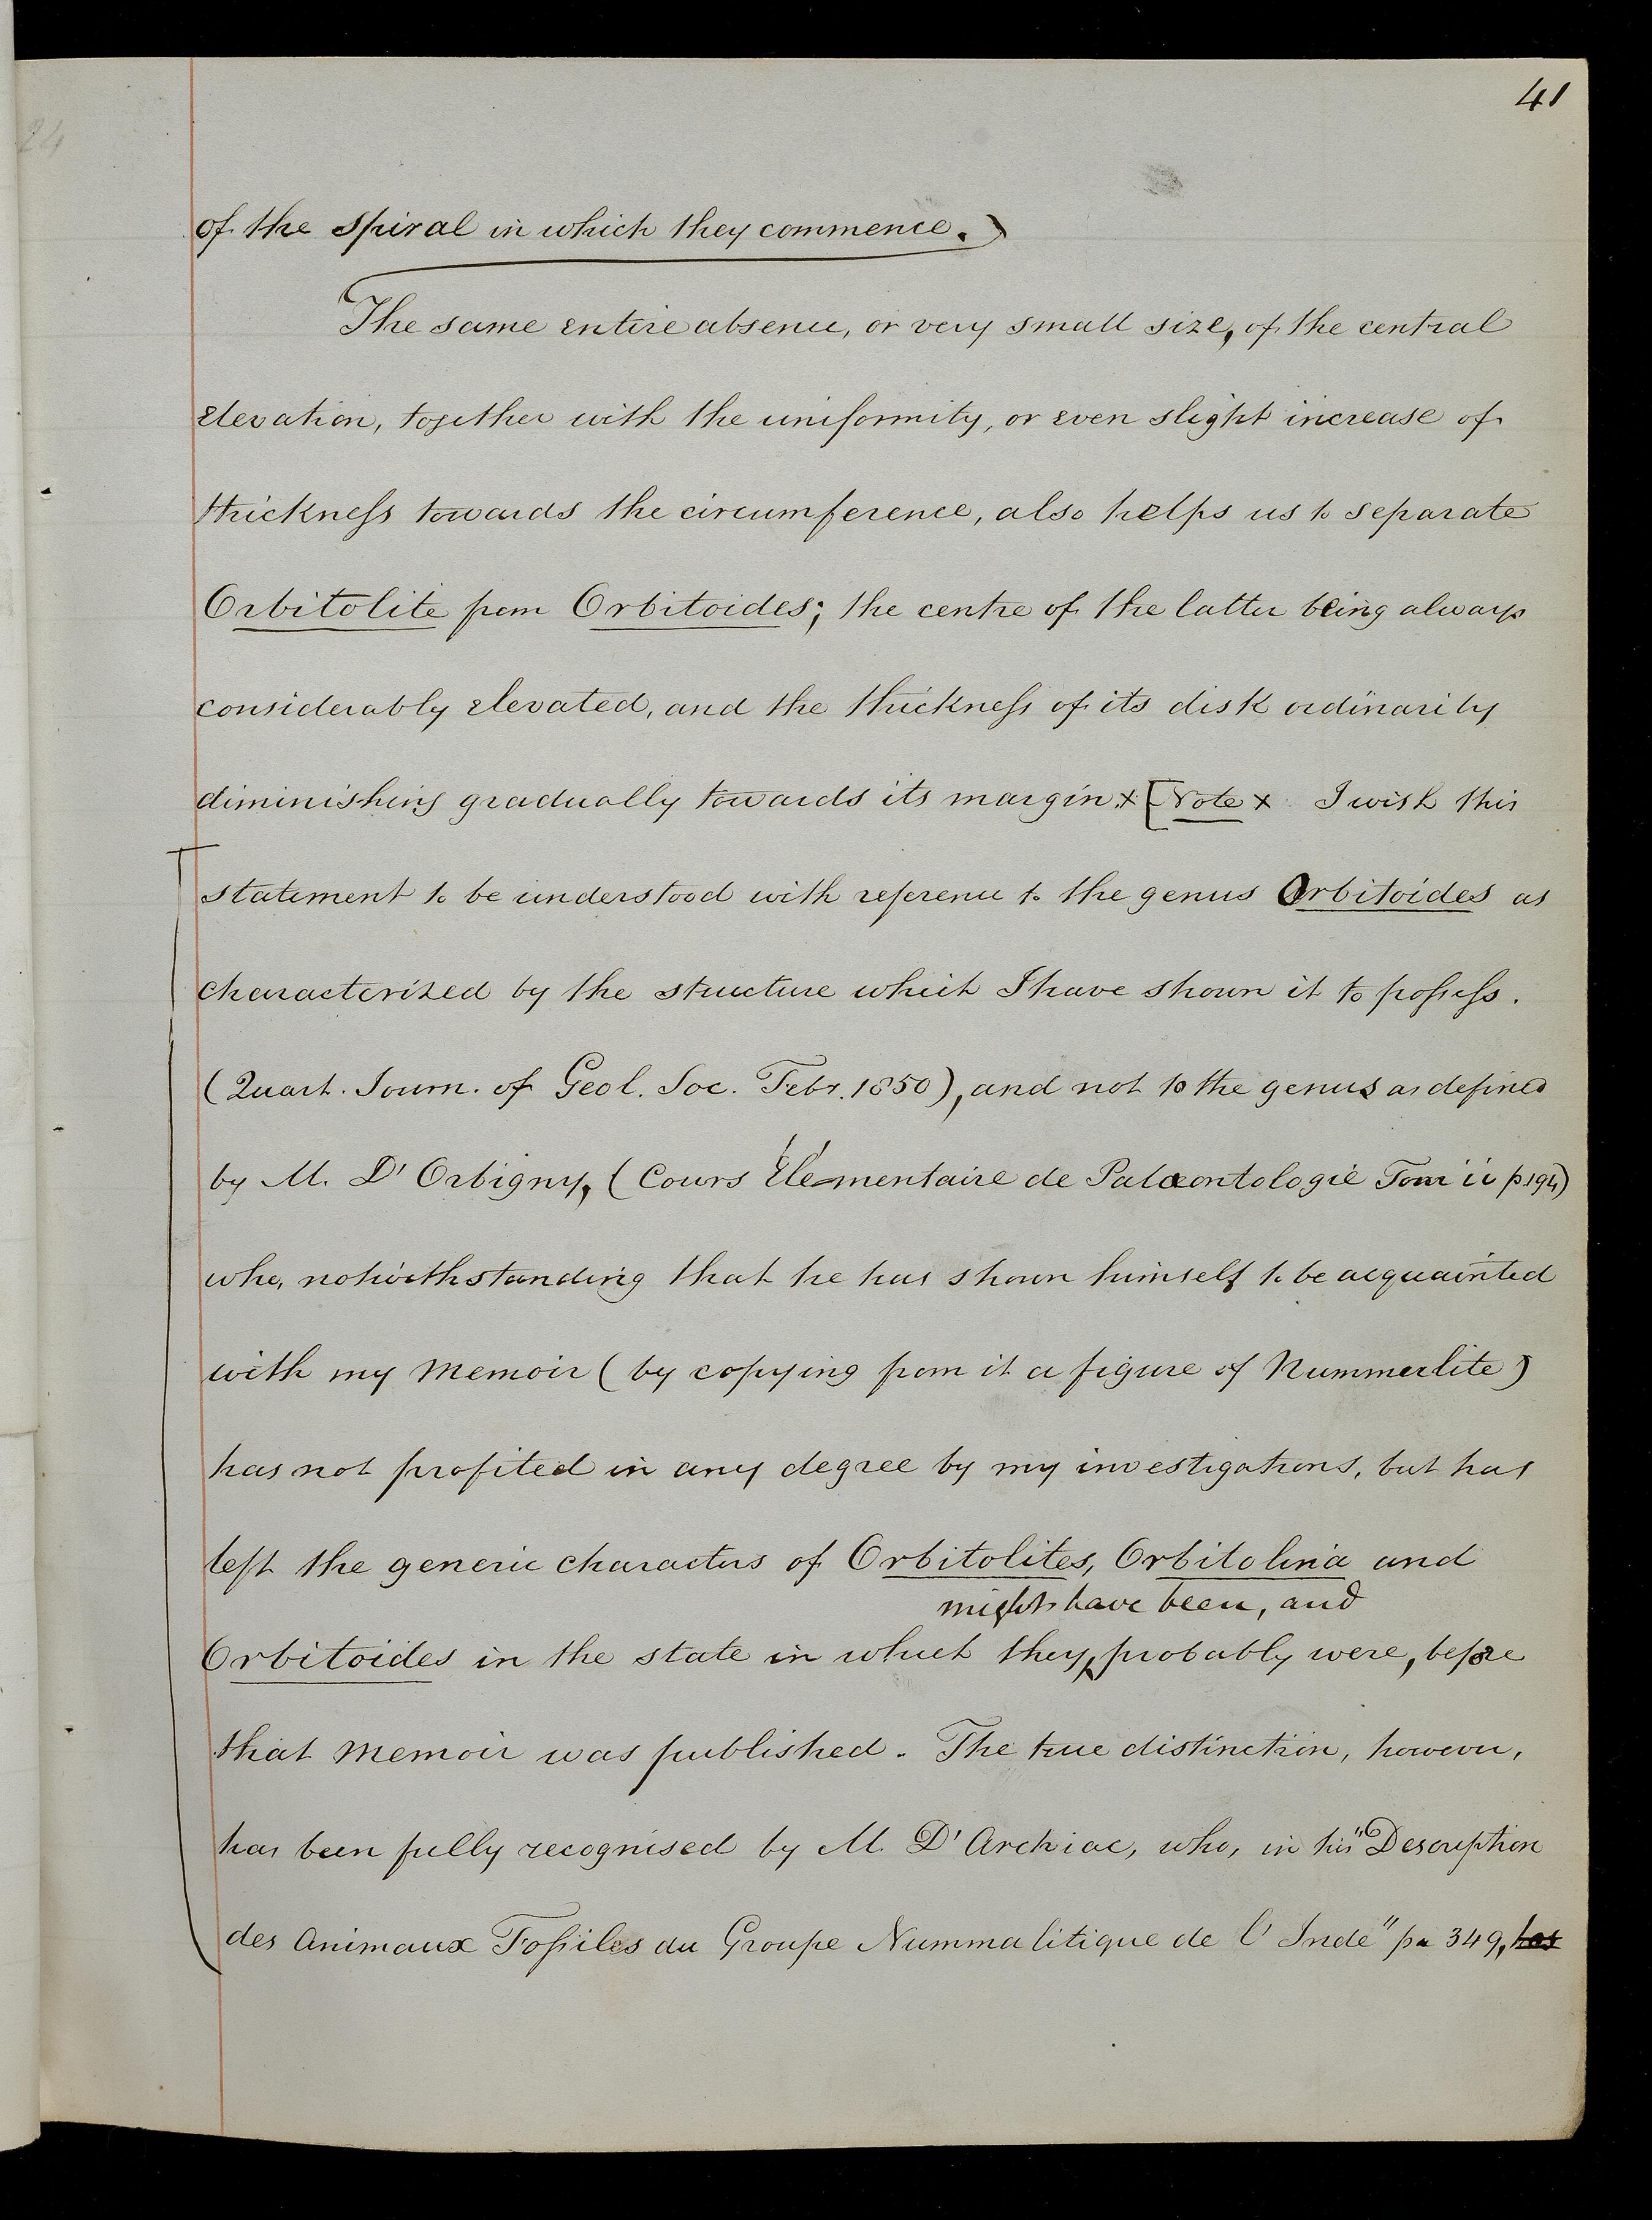 41
of the spiral in which they commence.
The same entire absence, or very small size, of the central
elevation, together with the uniformity, or even slight increase of
thickness towards the circumference, also helps us to separate
Orbitolite from Orbitoides; the centre of the latter being always
considerably elevated, and the thickness of its disk ordinarily
diminishing gradually towards its margin.x [Note x I wish this
statement to be understood with reference to the genus Orbitoides as
characterized by the structure which I have shown it to possess.
(Quart. Journ. of Geol. Soc. Febr. 1850), and not to the genus as defined
by M. D'Orbigny, (Cours Élémentaire de Palæontologie Tom ii p.194)
who, notwithstanding that he has shown himself to be acquainted
with my Memoir (by copying from it a figure of Nummulite)
has not profited in any degree by my investigations, but has
left the generic characters of Orbitolites, Orbitolina and
might have been, and
Orbitoides in the state in which they probably were, before
that Memoir was published. The true distinction, however,
has been fully recognised by M. D'Archiac, who, in his "Description
des Animaux Fossiles du Groupe Nummulitique de l'Inde" p. 349, has